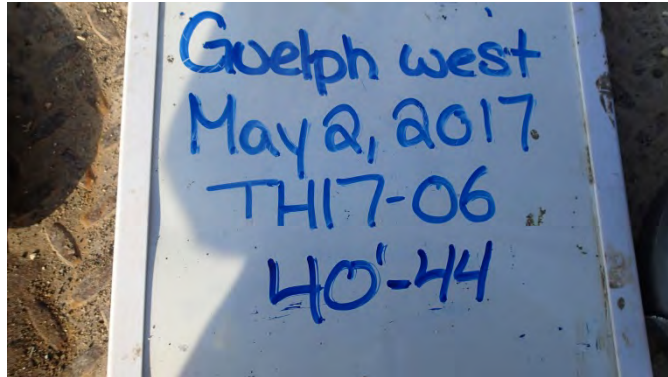 Guelph west
May 2, 2017
TH17-06
40'-44